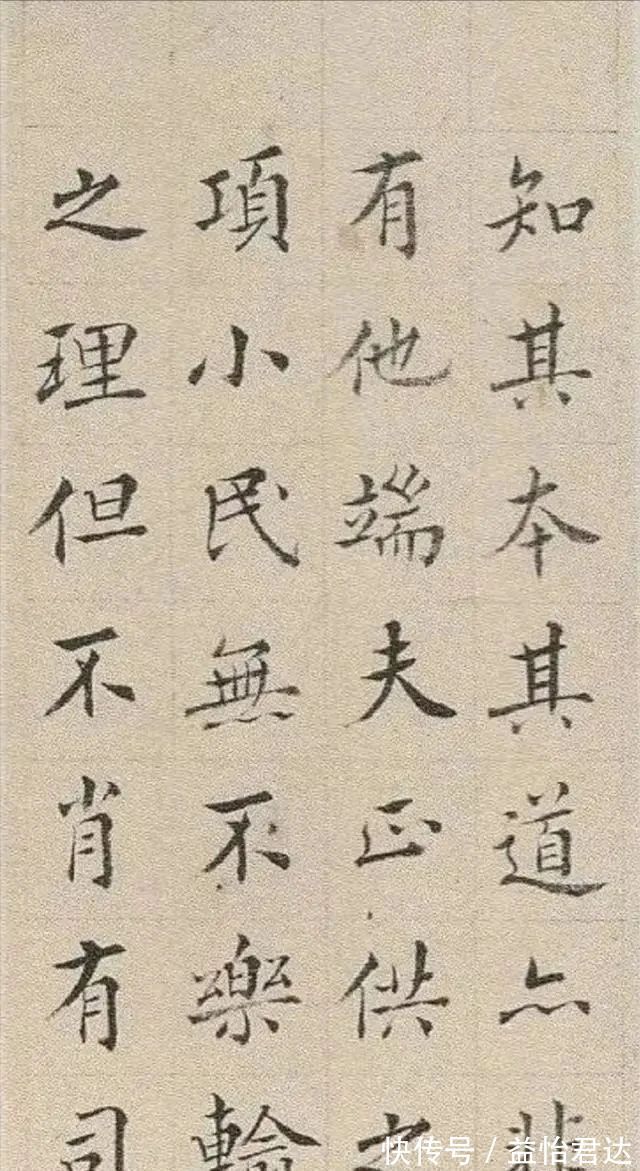 知其本其道亦非
有他端夫正供之
項小民無不樂輸
之理但不肖有司
快传号/益怡君达